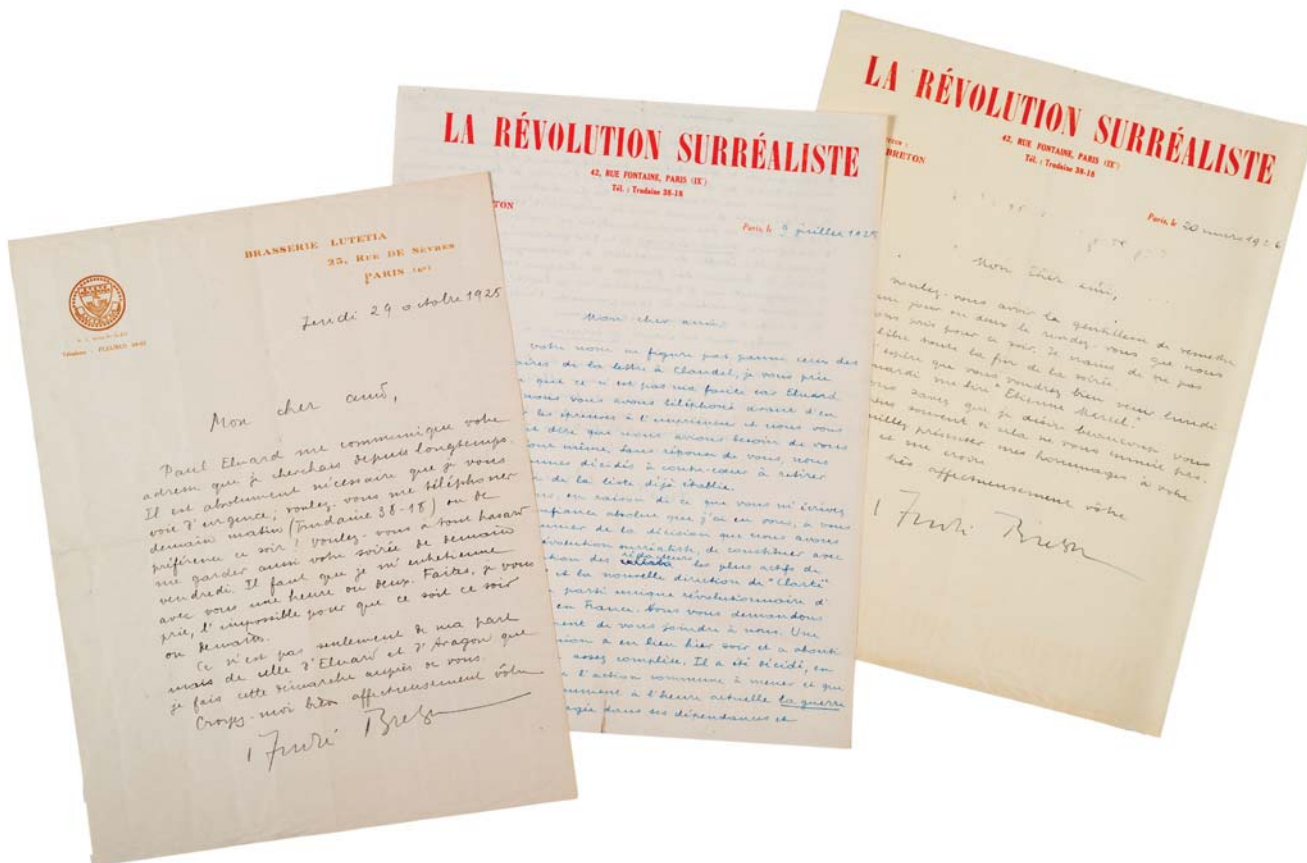 BRASSERIE LUTETIA
23, RUE DE SÈVRES
PARIS (6e)
Jeudi 29 octobre 1925
Mon cher ami,
Paul Eluard me communique votre
adresse que je cherchais depuis longtemps.
Il est absolument nécessaire que je vous
voie d'urgence; voulez-vous me téléphoner
demain matin (Trudaine 38-18) ou de
préférence ce soir? Voulez-vous à tout hasard
me garder aussi votre soirée de demain
vendredi. Il faut que je m'entretienne
avec vous une heure ou deux. Faites, je vous
prie, l'impossible pour que ce soit ce soir
ou demain.
Ce n'est pas seulement de ma part
mais de celle d'Eluard et d'Aragon que
je fais cette démarche auprès de vous.
Croyez-moi bien affectueusement vôtre
André Breton
LA RÉVOLUTION SURRÉALISTE
42, RUE FONTAINE, PARIS (IXe)
Tél. : Trudaine 38-18
TON
Paris, le 9 juillet 1925
Mon cher ami
votre nom ne figure pas parmi ceux des
aires de la lettre à Claudel, je vous prie
que ce n'est pas ma faute car Eluard
nous vous avons téléphoné avant d'en
les épreuves à l'imprimeur et nous vous
dire que nous avions besoin de vous
même. Sans réponse de vous, nous
mmes décidés à contre-cœur à retirer
de la liste déjà établie.
en raison de ce que vous m'écrivez
nfiance absolue que j'ai en vous, à vous
de la décision que nous avons
évolution surréaliste, de constituer avec
tion des rédacteurs les plus actifs de
et la nouvelle direction de "Clarté"
parti unique révolutionnaire d'
en France. Nous vous demandons
ment de vous joindre à nous. Une
union a eu lieu hier soir et a abouti
assez complète. Il a été décidé, en
l'action commune à mener et que
mment à l'heure actuelle la guerre
gée dans ses dépendances et
LA RÉVOLUTION SURRÉALISTE
42, RUE FONTAINE, PARIS (IXe)
Tél. : Trudaine 38-18
BRETON
Paris, le 20 mars 1926
Mon cher ami,
voulez-vous avoir la gentillesse de remettre
un jour ou deux le rendez-vous que nous
ons pris pour ce soir. Je crains de ne pas
libre toute la fin de la soirée.
espère que vous voudrez bien venir lundi
mardi me lire "Etienne Marcel".
ous savez que je désire beaucoup vous
souvent si cela ne vous ennuie pas.
uillez présenter mes hommages à votre
et me croire
très affectueusement vôtre
André Breton